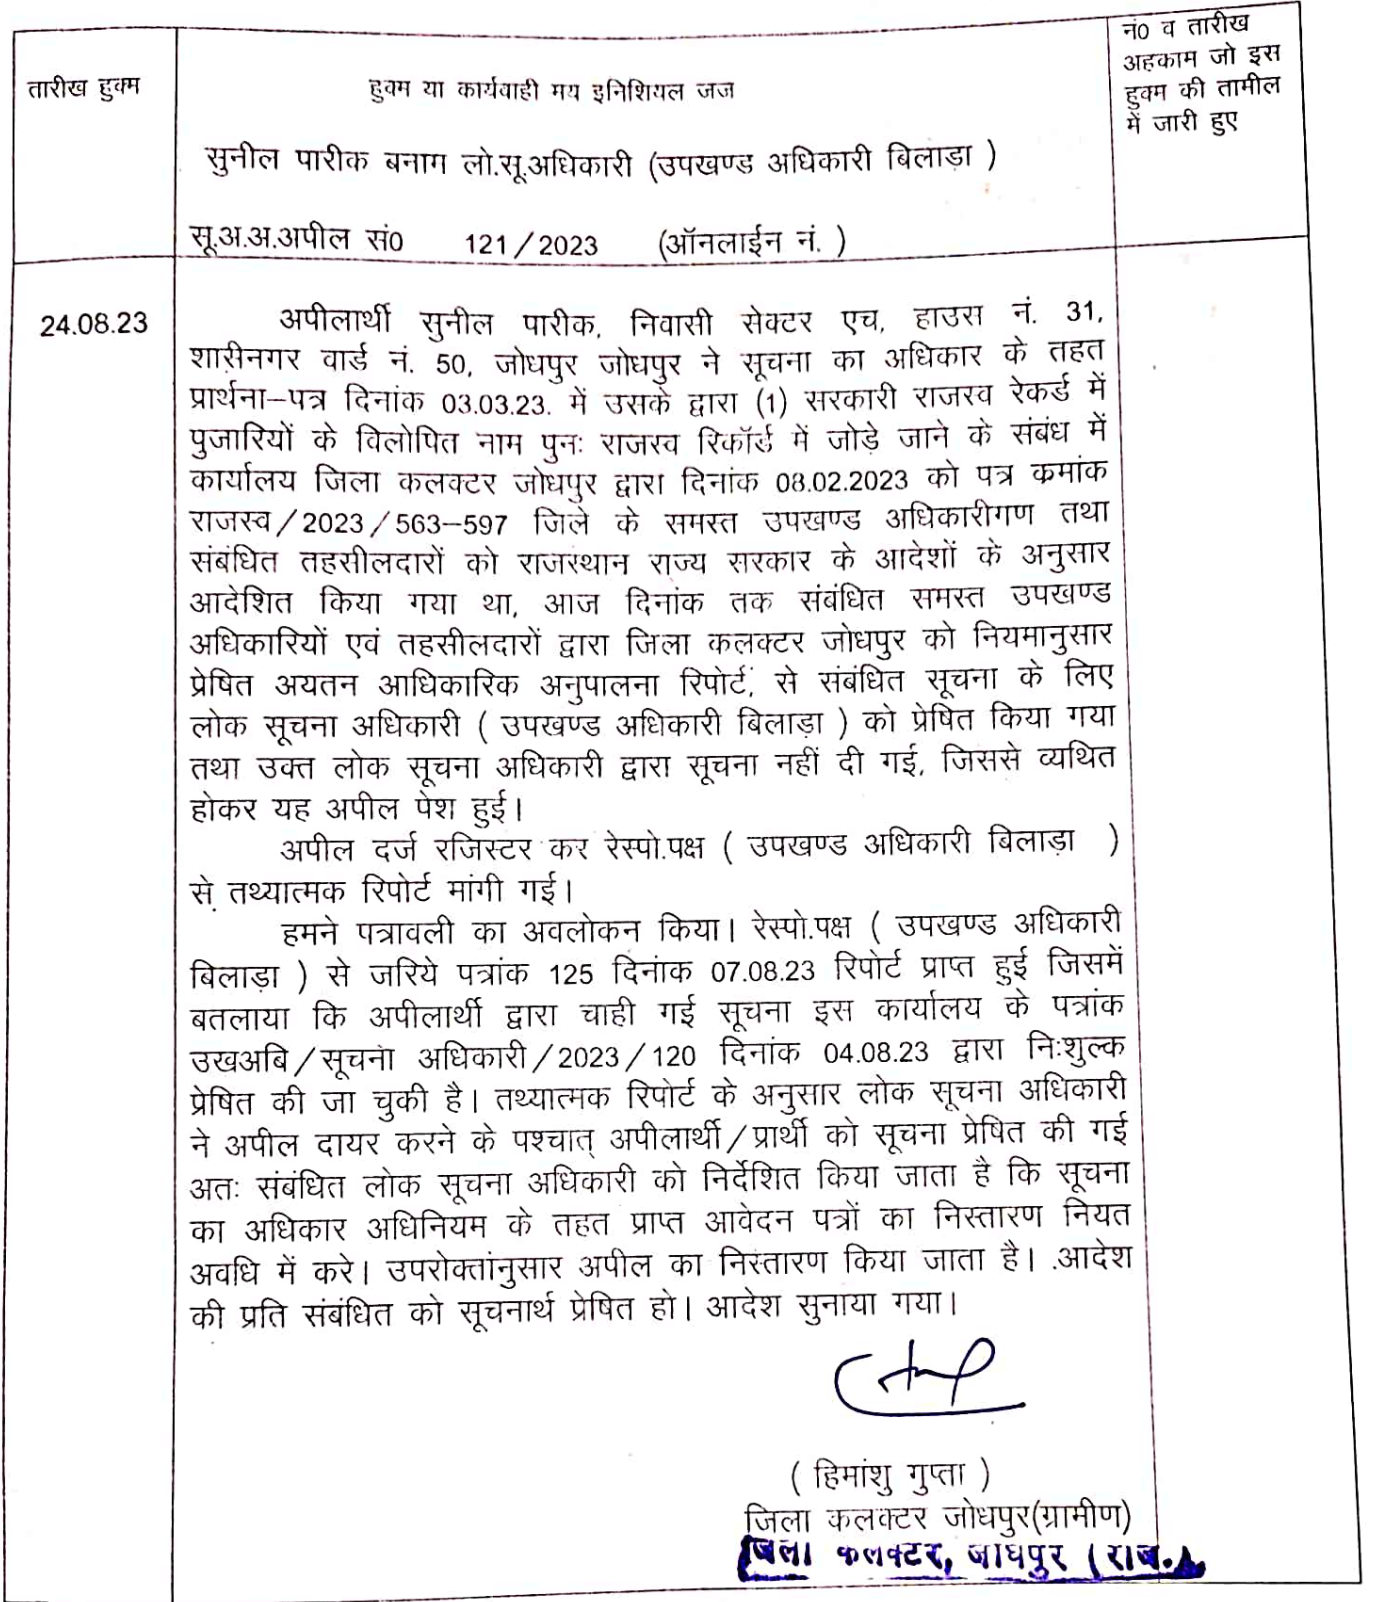 तारीख हुक्म
हुक्म या कार्यवाही मय इनिशियल जज
नं0 व तारीख
अहकाम जो इस
हुक्म की तामील
में जारी हुए
सुनील पारीक बनाम लो.सू.अधिकारी (उपखण्ड अधिकारी बिलाड़ा )
सू.अ.अ.अपील सं0 121/2023 (ऑनलाईन नं. )
24.08.23
अपीलार्थी सुनील पारीक, निवासी सेक्टर एच, हाउस नं. 31,
शास्रीनगर वार्ड नं. 50, जोधपुर जोधपुर ने सूचना का अधिकार के तहत
प्रार्थना–पत्र दिनांक 03.03.23. में उसके द्वारा (1) सरकारी राजस्व रेकर्ड में
पुजारियों के विलोपित नाम पुनः राजस्व रिकॉर्ड में जोड़े जाने के संबंध में
कार्यालय जिला कलक्टर जोधपुर द्वारा दिनांक 08.02.2023 को पत्र कमांक
राजस्व/2023/563–597 जिले के समस्त उपखण्ड अधिकारीगण तथा
संबंधित तहसीलदारों को राजस्थान राज्य सरकार के आदेशों के अनुसार
आदेशित किया गया था, आज दिनांक तक संबंधित समस्त उपखण्ड
अधिकारियों एवं तहसीलदारों द्वारा जिला कलक्टर जोधपुर को नियमानुसार
प्रेषित अयतन आधिकारिक अनुपालना रिपोर्ट, से संबंधित सूचना के लिए
लोक सूचना अधिकारी ( उपखण्ड अधिकारी बिलाड़ा ) को प्रेषित किया गया
तथा उक्त लोक सूचना अधिकारी द्वारा सूचना नहीं दी गई, जिससे व्यथित
होकर यह अपील पेश हुई।
अपील दर्ज रजिस्टर कर रेस्पो.पक्ष ( उपखण्ड अधिकारी बिलाड़ा )
से तथ्यात्मक रिपोर्ट मांगी गई।
हमने पत्रावली का अवलोकन किया। रेस्पो.पक्ष ( उपखण्ड अधिकारी
बिलाड़ा ) से जरिये पत्रांक 125 दिनांक 07.08.23 रिपोर्ट प्राप्त हुई जिसमें
बतलाया कि अपीलार्थी द्वारा चाही गई सूचना इस कार्यालय के पत्रांक
उखअबि/सूचना अधिकारी/2023/120 दिनांक 04.08.23 द्वारा निःशुल्क
प्रेषित की जा चुकी है। तथ्यात्मक रिपोर्ट के अनुसार लोक सूचना अधिकारी
ने अपील दायर करने के पश्चात् अपीलार्थी/प्रार्थी को सूचना प्रेषित की गई
अतः संबंधित लोक सूचना अधिकारी को निर्देशित किया जाता है कि सूचना
का अधिकार अधिनियम के तहत प्राप्त आवेदन पत्रों का निस्तारण नियत
अवधि में करे। उपरोक्तांनुसार अपील का निस्तारण किया जाता है। .आदेश
की प्रति संबंधित को सूचनार्थ प्रेषित हो। आदेश सुनाया गया।
( हिमांशु गुप्ता )
जिला कलक्टर जोधपुर(ग्रामीण)
जिला कलक्टर, जोधपुर (राज.)